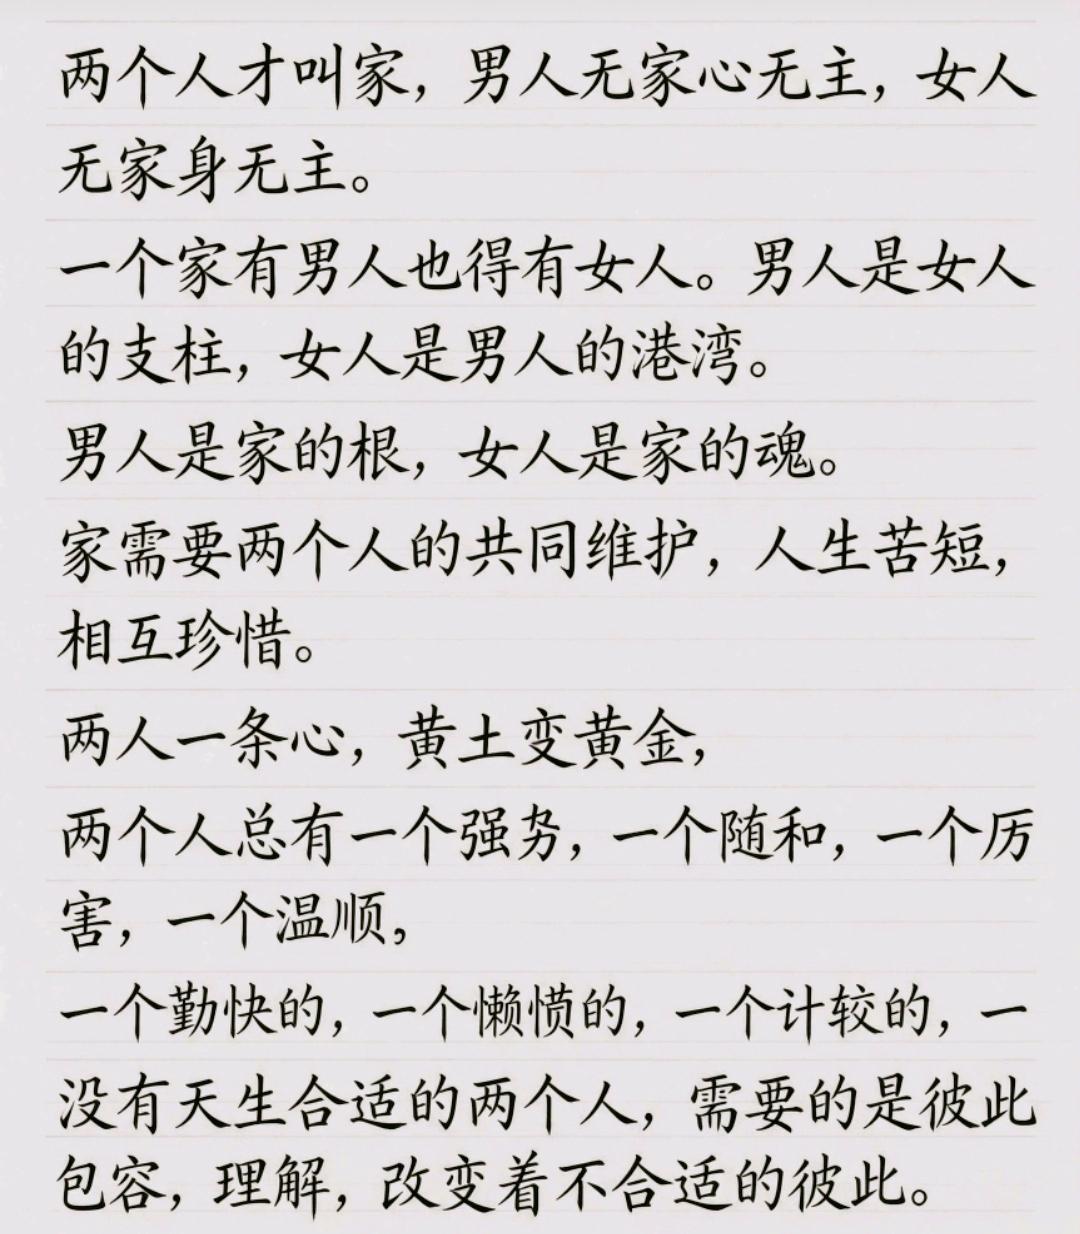 两个人才叫家，男人无家心无主，女人
无家身无主。
一个家有男人也得有女人。男人是女人
的支柱，女人是男人的港湾。
男人是家的根，女人是家的魂。
家需要两个人的共同维护，人生苦短，
相互珍惜。
两人一条心，黄土变黄金，
两个人总有一个强势，一个随和，一个厉
害，一个温顺，
一个勤快的，一个懒惯的，一个计较的，一
没有天生合适的两个人，需要的是彼此
包容，理解，改变着不合适的彼此。